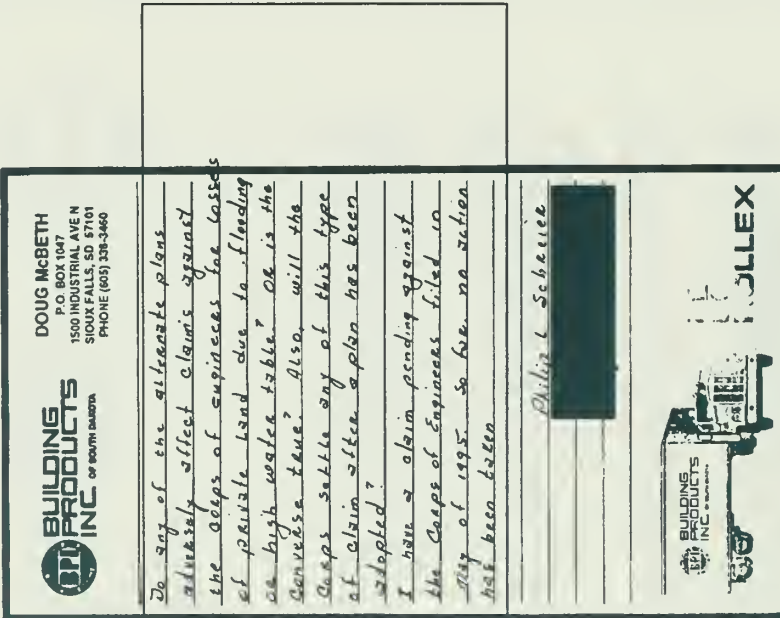 BPI
BUILDING
PRODUCTS
INC. OF SOUTH DAKOTA
DOUG McBETH
P.O. BOX 1047
1500 INDUSTRIAL AVE N
SIOUX FALLS, SD 57101
PHONE (605) 338-3460
Do any of the alternate plans
adversely affect claims against
the corps of engineers for losses
of private land due to flooding
or high water table? or is the
converse true? Also, will the
Corps settle any of this type
of claim after a plan has been
adopted?
I have a claim pending against
the Corps of Engineers filed in
May of 1995. So far, no action
has been taken
Philip L Schreier
BPI
BUILDING
PRODUCTS
INC.
OLLEX